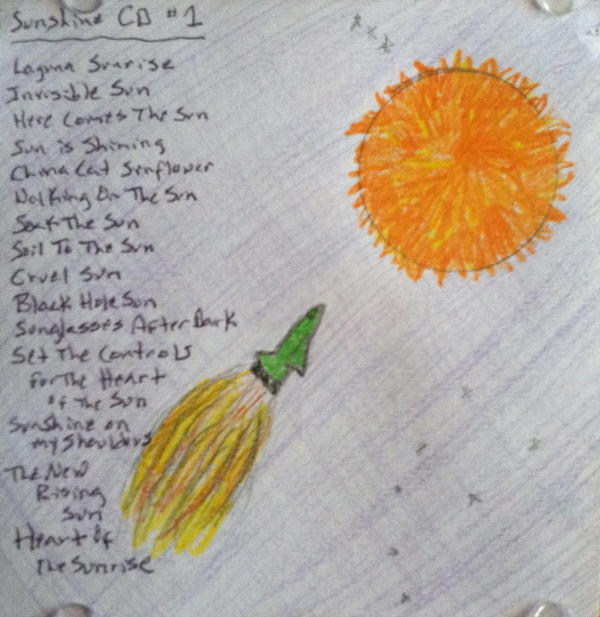 Sunshine CD #1
Laguna Sunrise
Invisible Sun
Here Comes The Sun
Sun is Shining
China Cat Sunflower
Walking On The Sun
Soak The Sun
Sail To The Sun
Cruel Sun
Black Hole Sun
Sunglasses After Dark
Set The Controls
For The Heart
of The Sun
Sunshine on
my Shoulders
The New
Rising
Sun
Heart Of
The Sunrise